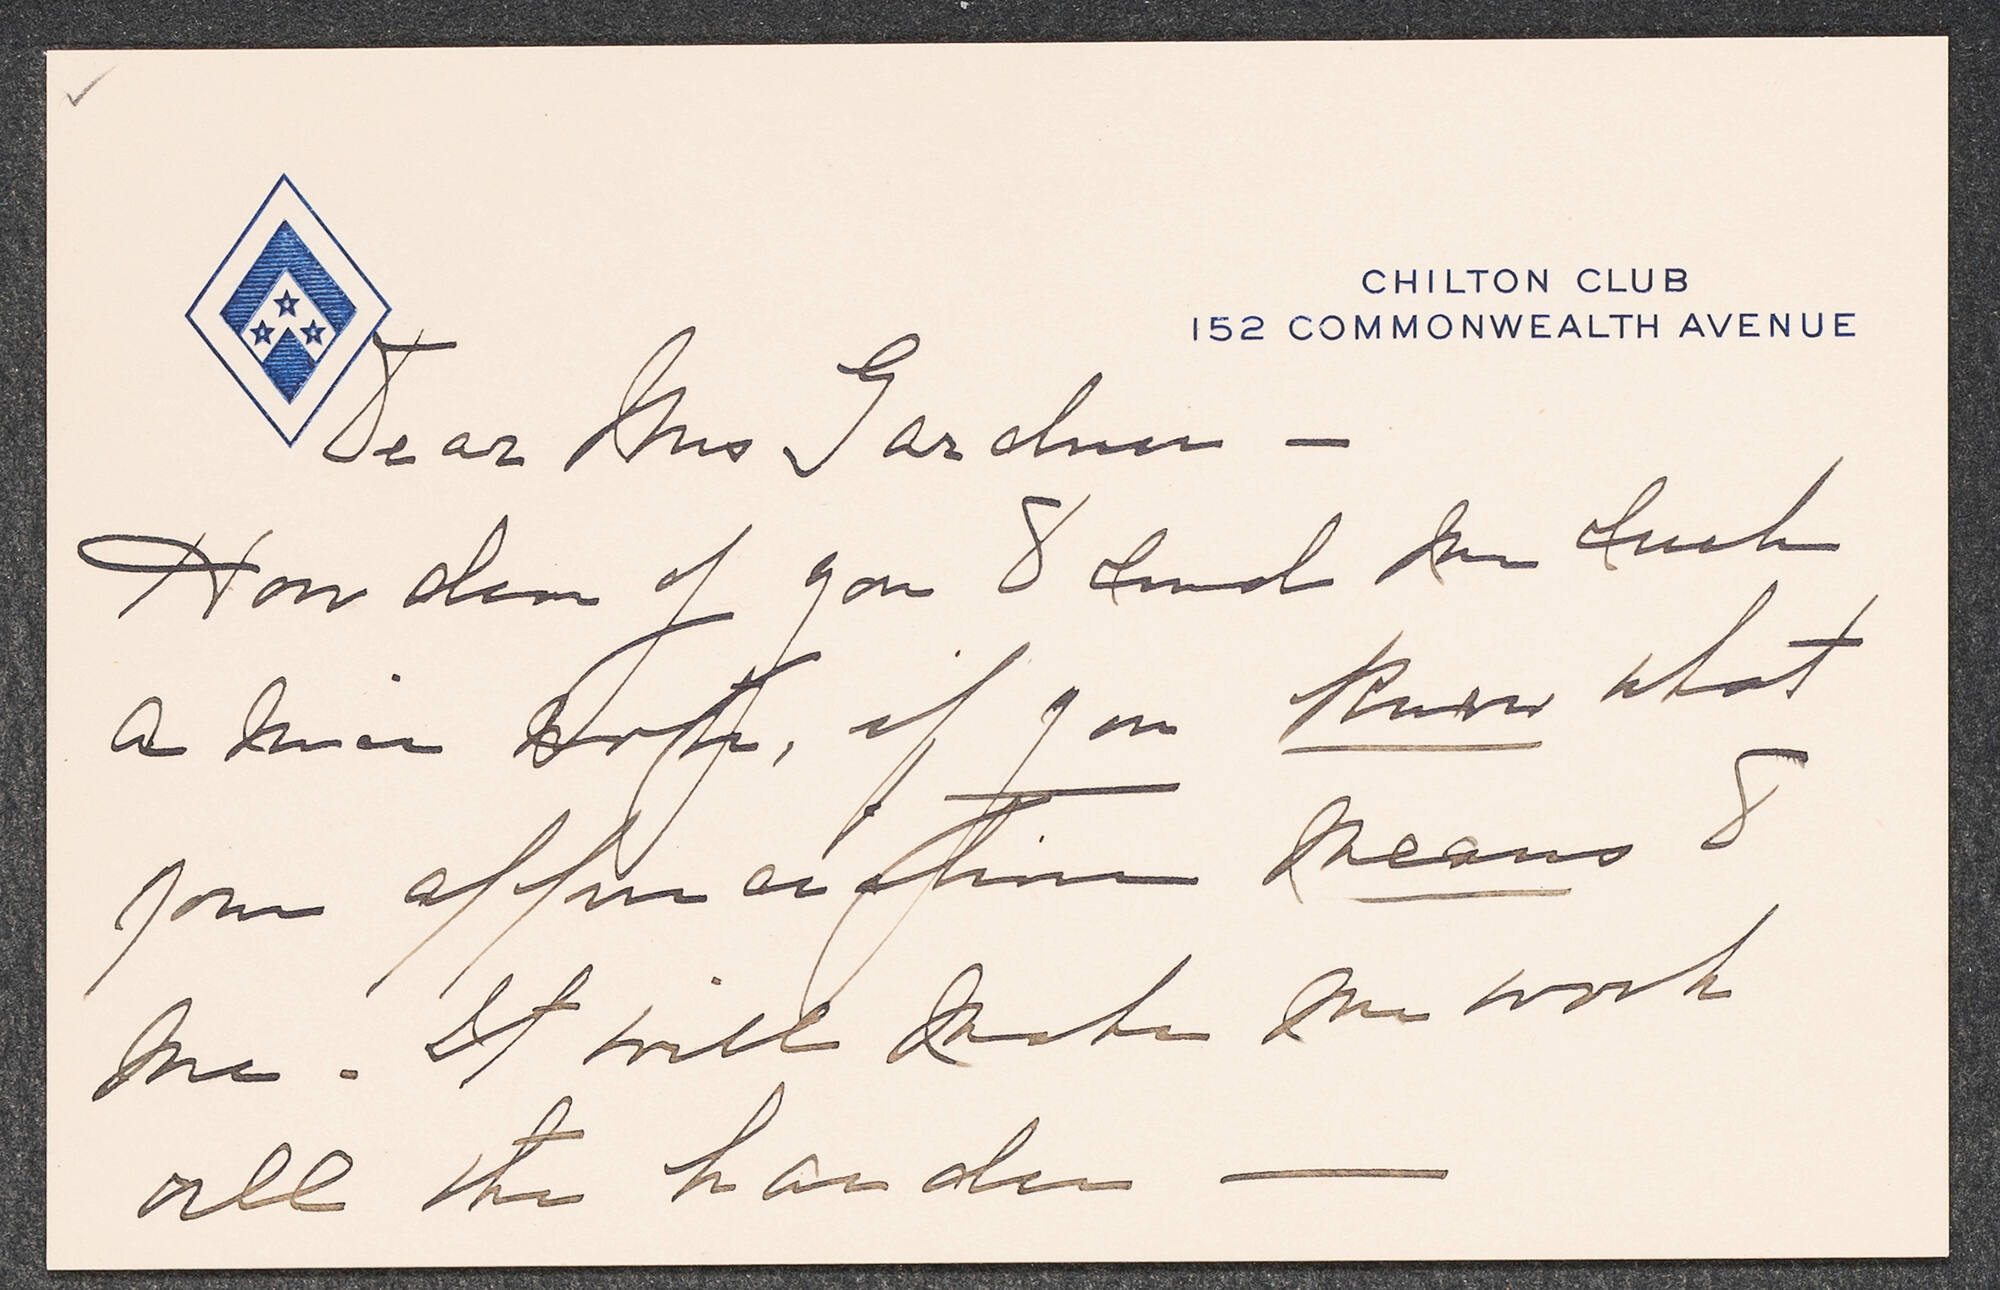 CHILTON CLUB
152 COMMONWEALTH AVENUE
Dear Mrs Gardner —
How dear of you to send me such
a nice note, if you know what
your appreciation means to
me. It will make me work
all the harder —